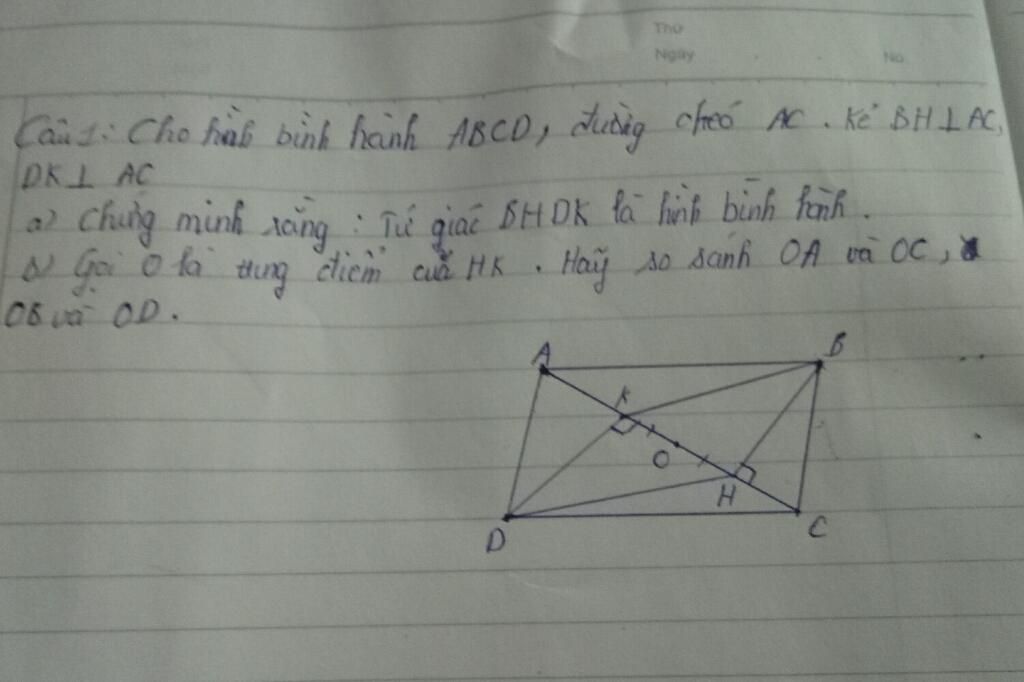 Thứ
Ngày . . No.
Câu 1: Cho hình bình hành ABCD, đường chéo AC. Kẻ BH⊥AC,
DK⊥ AC
a) Chứng minh rằng: Tứ giác BHDK là hình bình hành.
b) Gọi O là trung điểm của HK. Hãy so sánh OA và OC,
OB và OD.
A B
K
O
H
D C